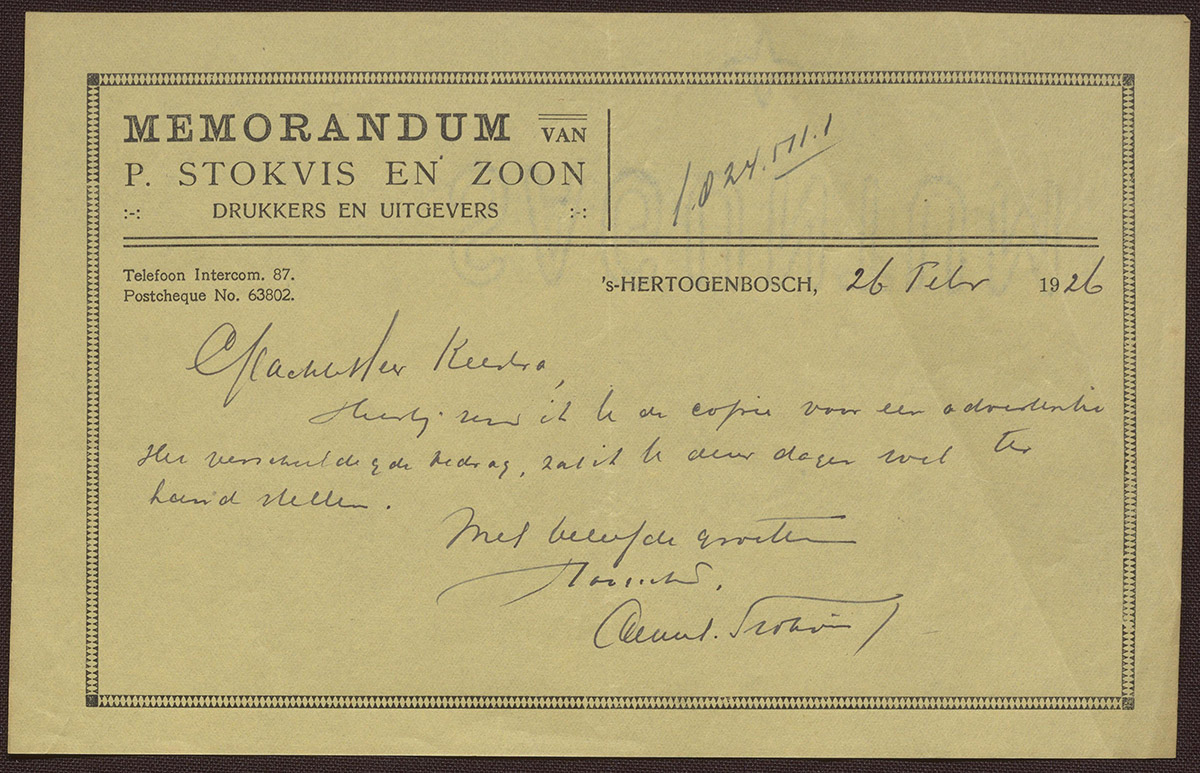 MEMORANDUM VAN
P. STOKVIS EN ZOON
:-: DRUKKERS EN UITGEVERS :-:
Telefoon Intercom. 87.
Postcheque No. 63802.
's-HERTOGENBOSCH, 26 Febr 1926
Hierbij zend ik U de copie voor een advertentie
Het verschuldigde bedrag, zal ik U dezer dagen wel ter
hand stellen.
Met beleefde groeten
Stokvis